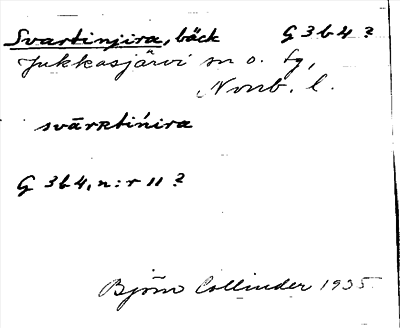 Svartinjira, bäck G 3 b 4 ?
Jukkasjärvi sn o. tg,
Norrb. l.
svārʀtińira
G 3 b 4, n:r 11 ?
Björn Collinder 1935